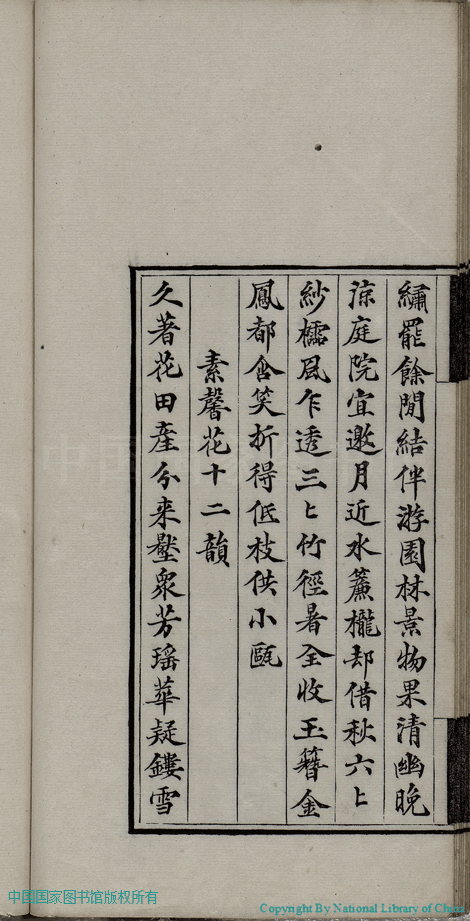 繡罷餘閒結伴游園林景物果清幽晚
涼庭院宜邀月近水簾櫳却借秋六匕
紗櫺風乍透三匕竹徑暑全收玉簪金
鳳都含笑折得低枝供小甌
素馨花十二韻
久著花田產分來壓衆芳瑤華疑鏤雪
中国国家图书馆版权所有
Copyright By National Library of Chin